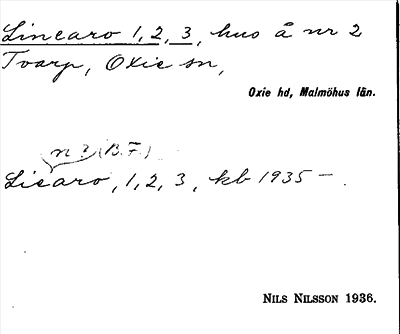 Linearo 1, 2, 3, hus å nr 2
Tvarp, Oxie sn,
Oxie hd, Malmöhus län.
n? (B.F.)
Lisaro, 1, 2, 3, kb 1935 – .
NILS NILSSON 1936.